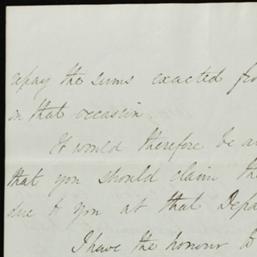 repay the sums exacted fro
on that occasion.
It would therefore be a
that you should claim the
due to you at that Depa
I have the honour to